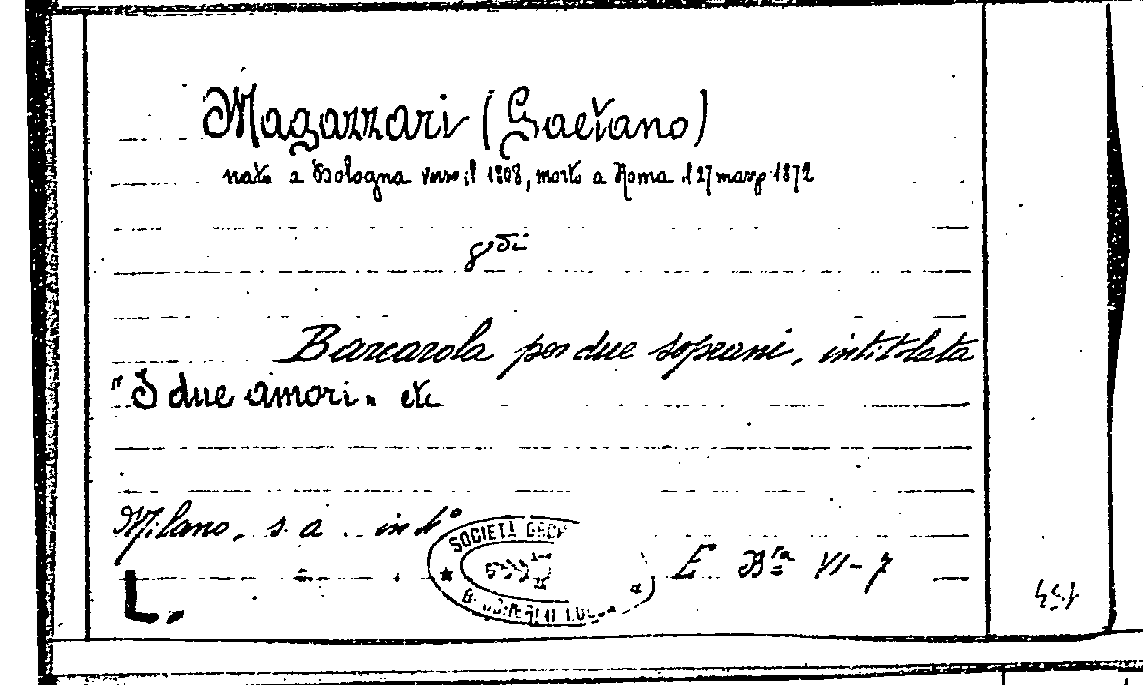 Magazzari (Gaetano)
nato a Bologna verso il 1808, morto a Roma il 27 marzo 1872
8di
Barcarola per due soprani, intitolata
"I due amori" etc
Milano, s. a. in 4°
SOCIETÀ
E Bta VI-7
L.